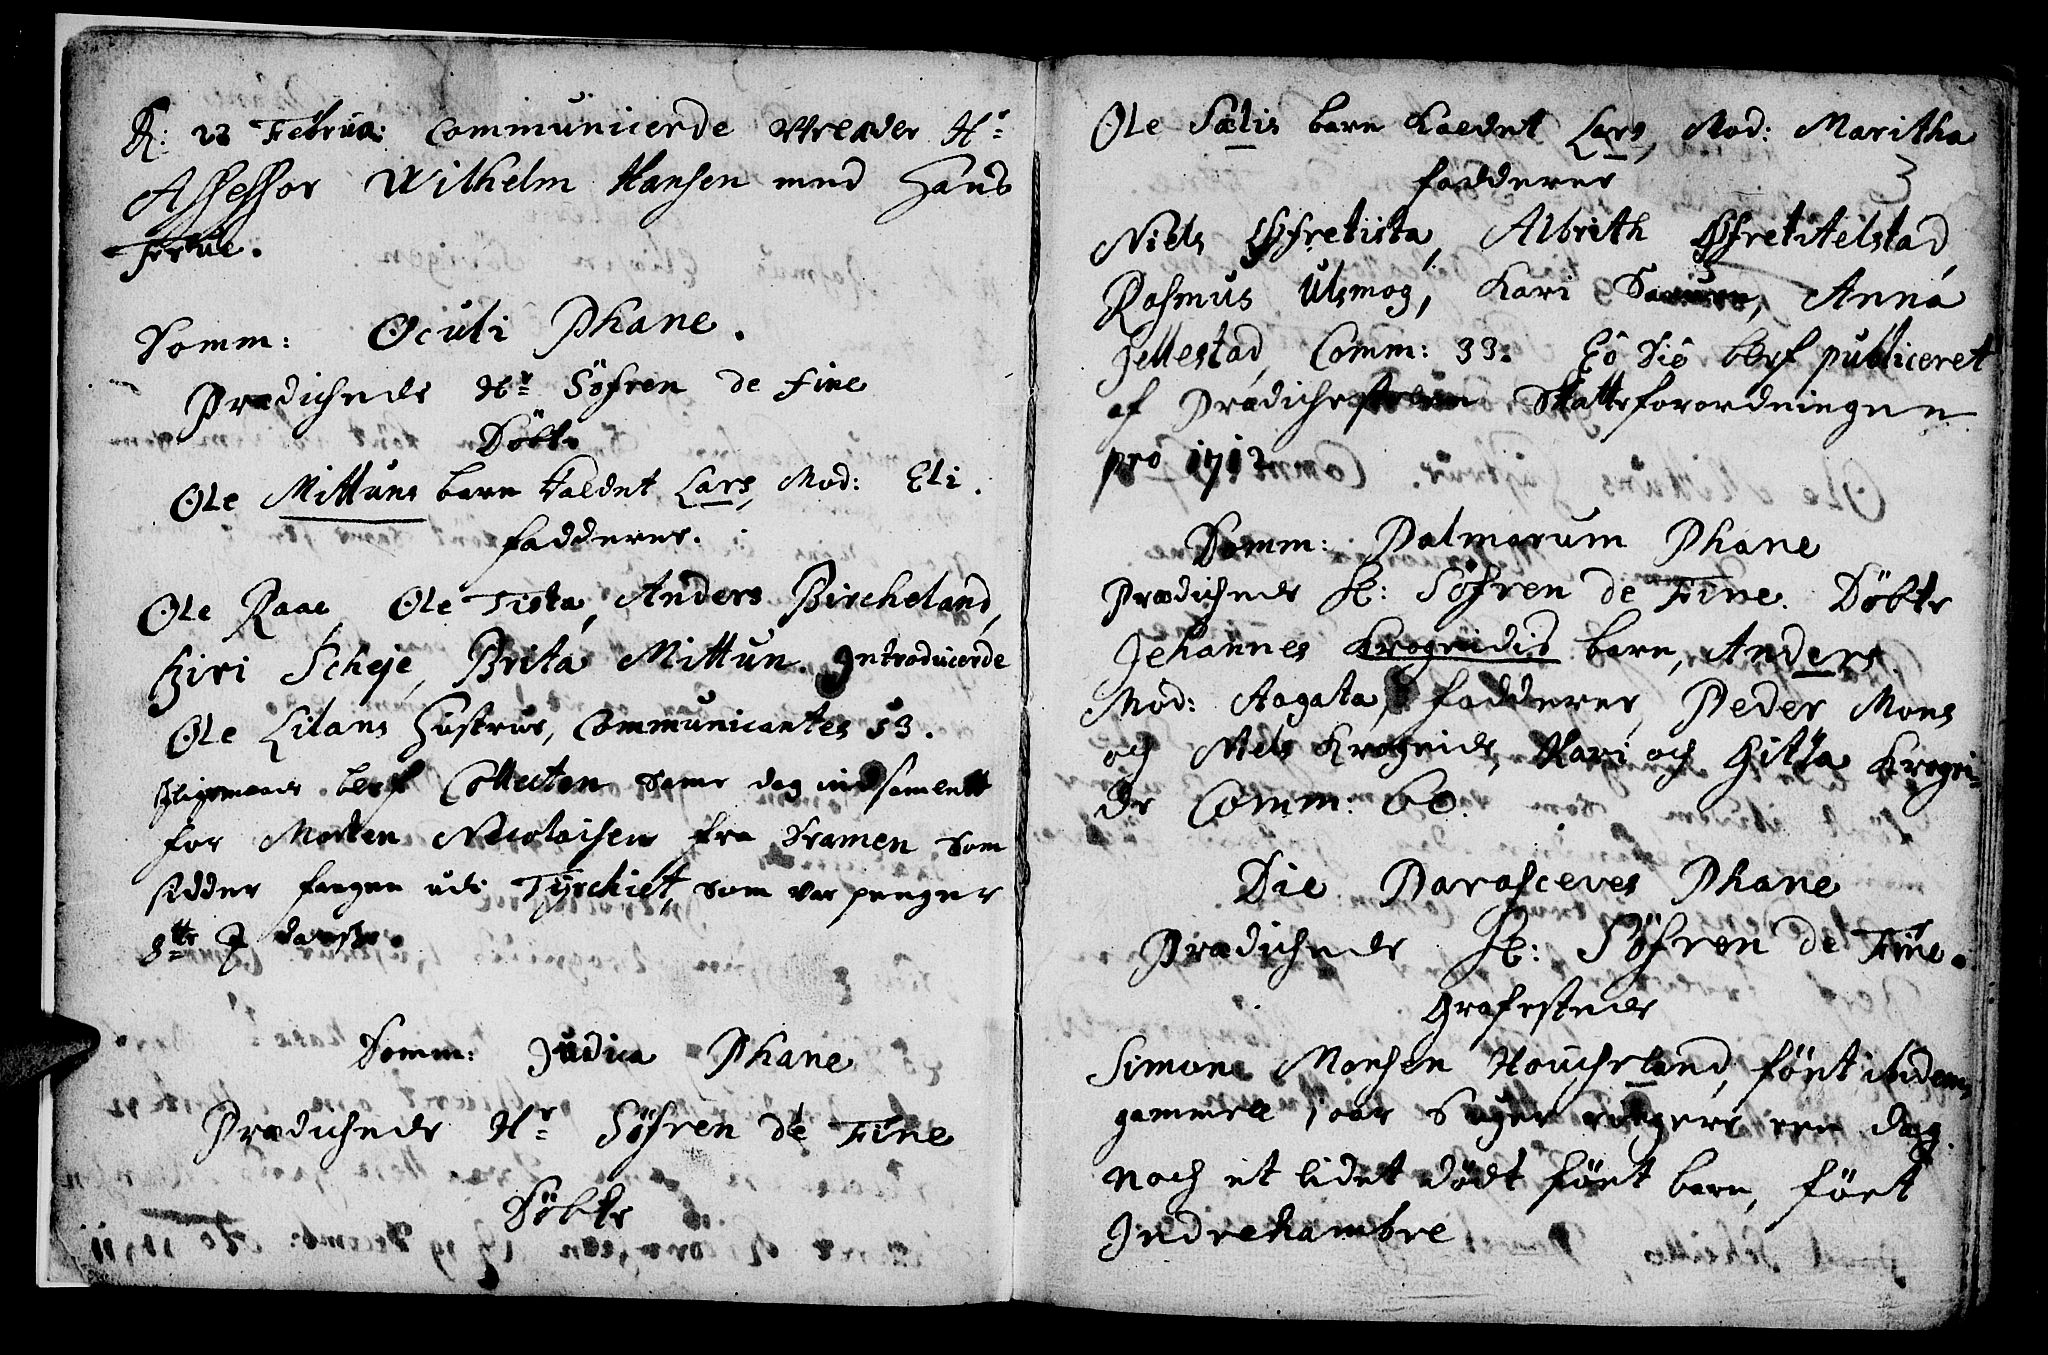 22 Februa: Communicerde Hr
Assessor Wilhelm Hansen med Hans
Frue.
Domm: Oculi Phane.
Prædichede Hr Söfren de Fine
Döbt
Ole Mittuns barn kaldet Lars, Mod: Eli.
fadderer.
Ole Raae, Ole Tista, Anders Bircheland,
Giri Scheje, Brita Mittun. Introducerde
Ole Lilans Hustrue, Communicantes 53.
blef Collecten same dag indsamlett
for Morten Nicolaisen fra Dramen som
sidder fangen udi Tyrchiet, som var penger
Domm: Judica Phane
Prædichede Hr Söfren de Fine
Döbte
Ole Sælis barn kaldet Lars, Mod: Maritha
fadderer 3
Niels Öfretista, Albrith Öfretitelstad,
Rasmus Ulsmog, Kari Anna
Jellestad, Comm: 33. Eô diê blef publiceret
af Prædichestolen Skatteforordningen
pro 1712
Domm: Palmarum Phane
Prædichede Söfren de Fine. Döbte
Jehannes Krogeidis barn, Anders.
Mod: Aagata, fadderer, Peder, Mons
och Niels Krogeide, Kari och Gitta Krogei-
de Comm: 60.
Die Parasceves Phane
Prædichede Söfren de Fine.
Grafestede
Simon Monsen Houcheland, födt
gammell 1 aar uger een dag.
noch et lidet dödt födt barn, födt
Indrehambre